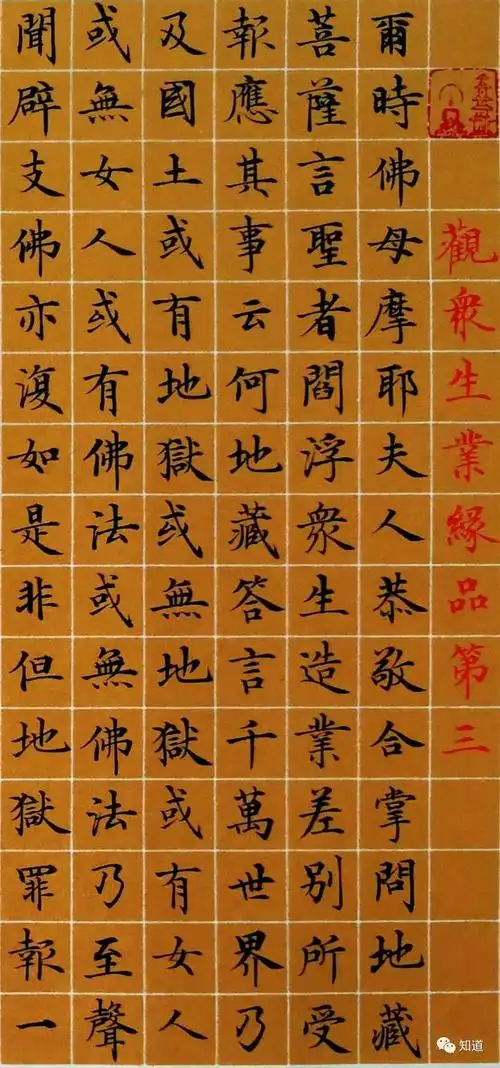 觀衆生業緣品第三
爾時佛母摩耶夫人恭敬合掌問地藏
菩薩言聖者閻浮衆生造業差别所受
報應其事云何地藏答言千萬世界乃
及國土或有地獄或無地獄或有女人
或無女人或有佛法或無佛法乃至聲
聞辟支佛亦復如是非但地獄罪報一
知道